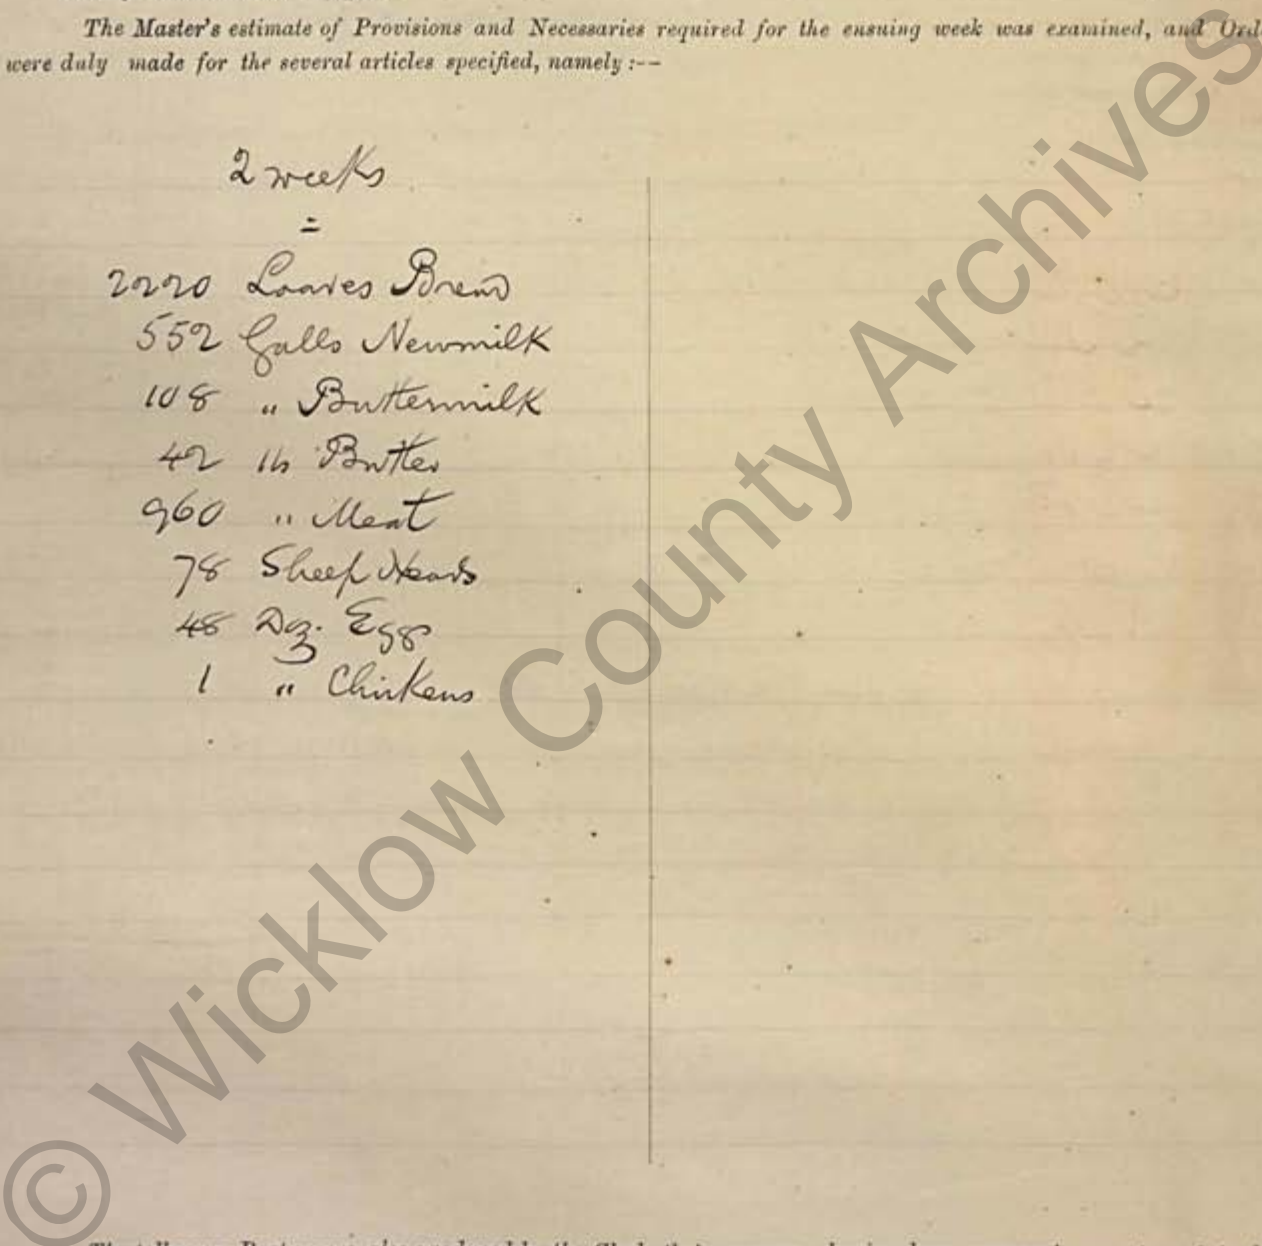 The Master's estimate of Provisions and Necessaries required for the ensuing week was examined, and Ord
were duly made for the several articles specified, namely :--
2 weeks
2220 Loaves Bread
552 Galls Newmilk
108 " Buttermilk
42 lb Butter
960 " Meat
78 Sheep Heads
48 Doz. Eggs
1 " Chickens
© Wicklow County Archives